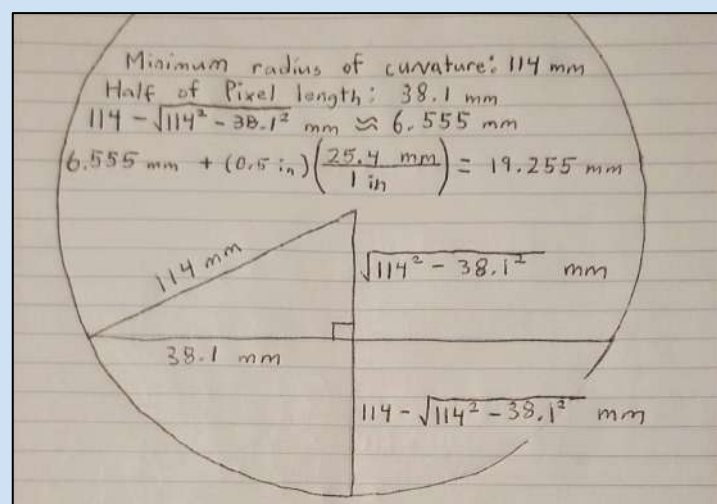 Minimum radius of curvature: 114 mm
Half of Pixel length: 38.1 mm
114 - √(114² - 38.1²) mm ≈ 6.555 mm
6.555 mm + (0.5 in)(25.4 mm / 1 in) = 19.255 mm
114 mm
√(114² - 38.1²) mm
38.1 mm
114 - √(114² - 38.1²) mm